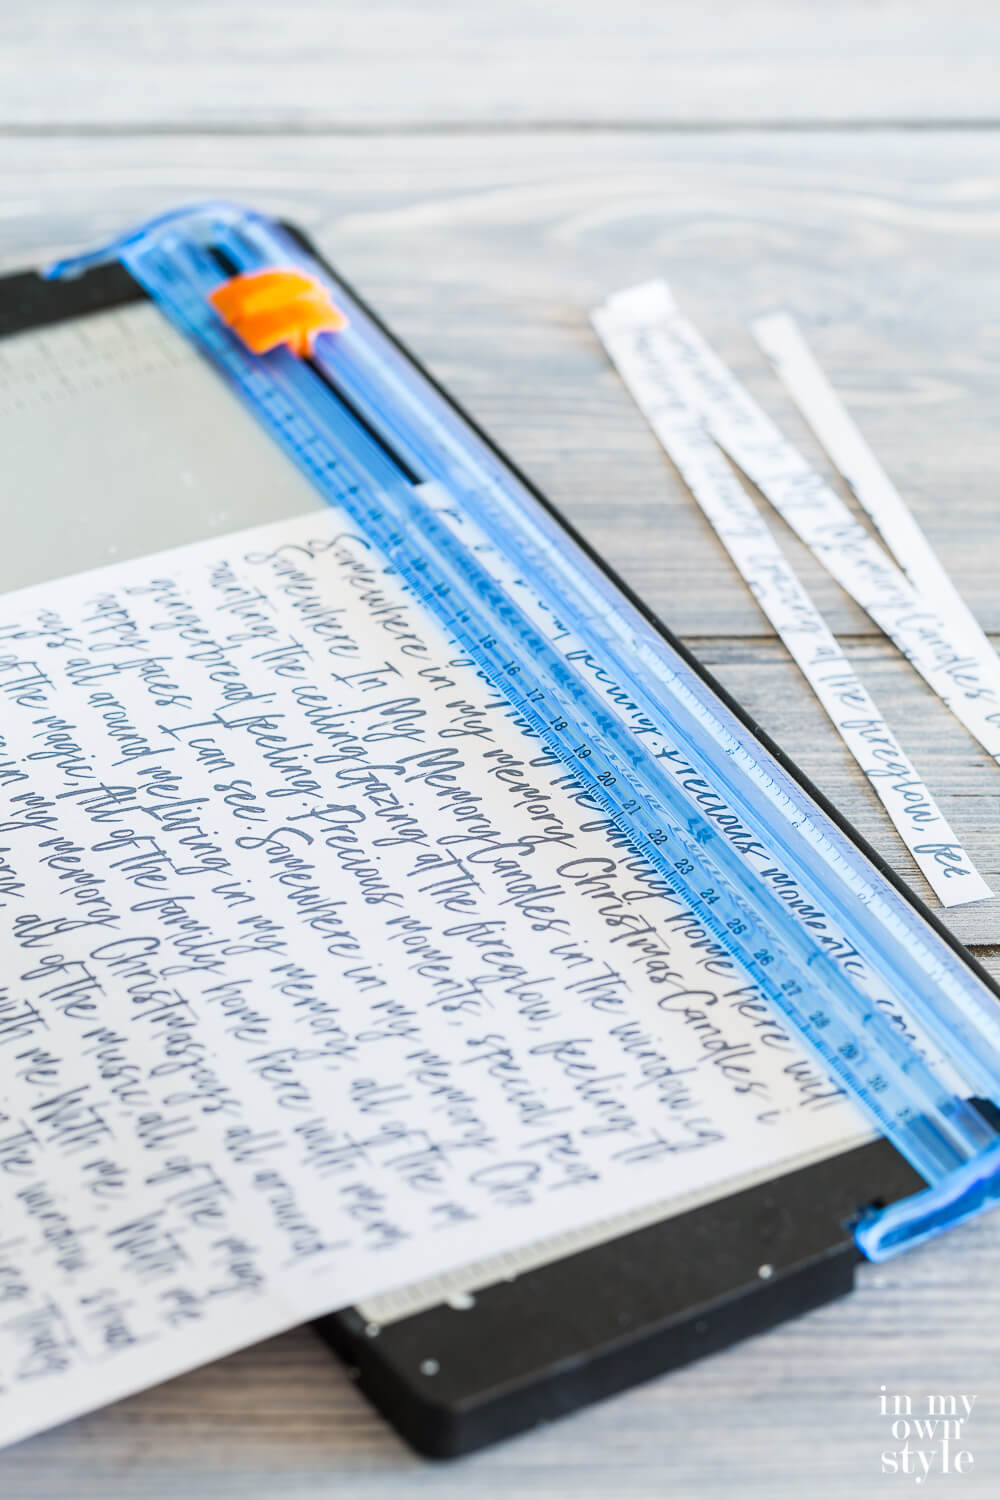 My Memory Candles
Gazing at the fireglow, fee
feeling. Precious moments
of the family home here with
Somewhere in my memory Christmas Candles i
Somewhere In My Memory Candles in the window
painting the ceiling Gazing at the fireglow, feeling th
gingerbread feeling. Precious moments, special peop
happy faces I can see. Somewhere in my memory Chr
all around me Living in my memory, all of the m
of the magic, All of the family home here with me
in my memory Christmas joys all around
all of the music, all of the mag
with me With me, With me
in the window, shad
16
17
18
19
20
21
22
23
24
25
26
27
28
29
30
31
in my
own
style